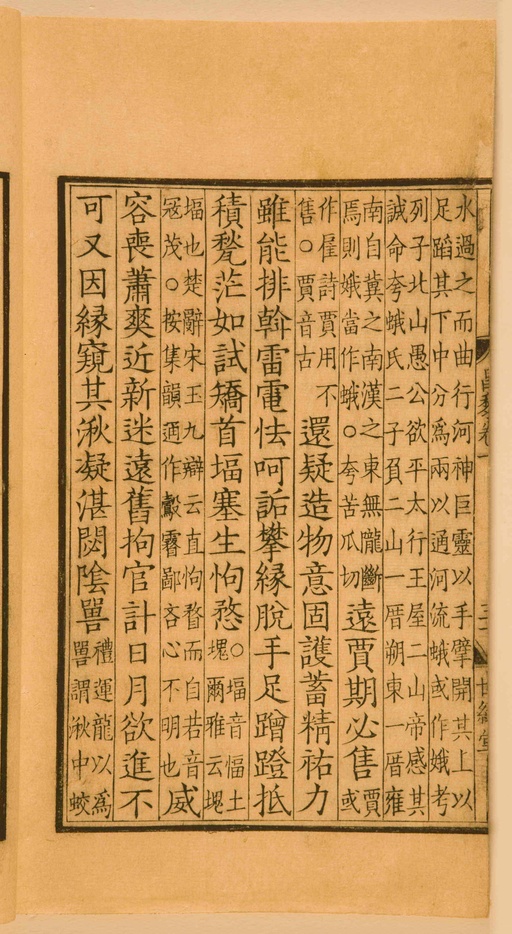 水過之而曲行河神巨靈以手擘開其上以
足蹈其下中分為兩以通河流蛾或作娥考
列子北山愚公欲平太行王屋二山帝感其
誠命夸蛾氏二子負二山一厝朔東一厝雍
南自冀之南漢之東無隴斷
焉則娥當作蛾○夸苦瓜切
遠賈期必售
賈
或
作詩賈用不
售○賈音古
還疑造物意固護蓄精祐力
雖能排斡雷電怯呵詬攀緣脫手足蹭蹬抵
積甃茫如試矯首堛塞生怐愗
○堛音愊土
塊爾雅云塊
堛也楚辭宋玉九辯云直怐瞀而自若音
冦茂○按集韻廼作㝅霿鄙吝心不明也
威
容喪蕭爽近新迷遠舊拘官計日月欲進不
可又因緣窺其湫凝湛閟陰嘼
禮運龍以為
嘼謂湫中蛟